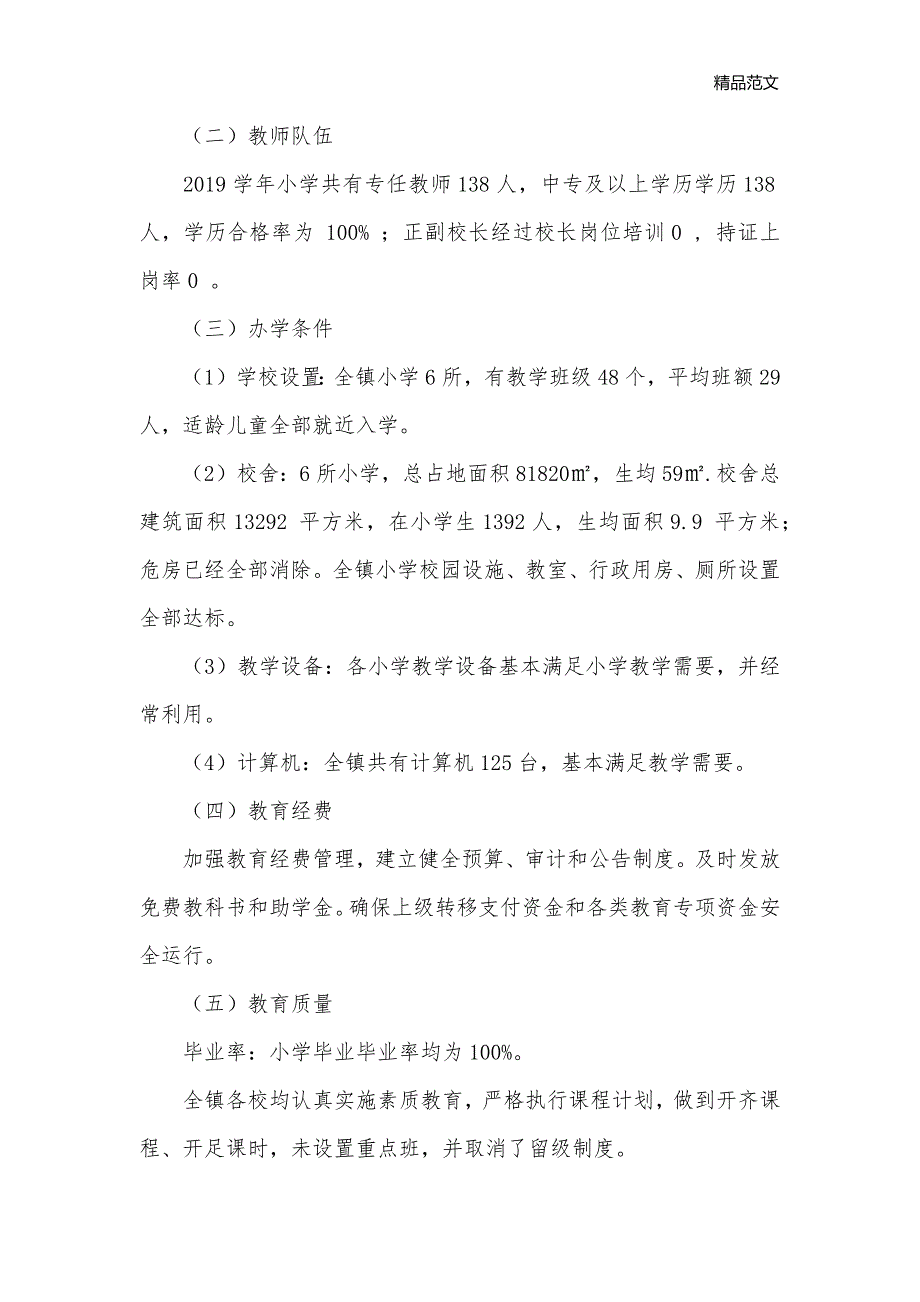 精品范文
（二）教师队伍
2019 学年小学共有专任教师 138 人，中专及以上学历学历 138
人，学历合格率为 100% ；正副校长经过校长岗位培训0 ，持证上
岗率0 。
（三）办学条件
（1）学校设置：全镇小学 6 所，有教学班级 48 个，平均班额 29
人，适龄儿童全部就近入学。
（2）校舍：6 所小学，总占地面积 81820㎡，生均 59㎡.校舍总
建筑面积 13292 平方米，在小学生 1392 人，生均面积 9.9 平方米；
危房已经全部消除。全镇小学校园设施、教室、行政用房、厕所设置
全部达标。
（3）教学设备：各小学教学设备基本满足小学教学需要，并经
常利用。
（4）计算机：全镇共有计算机 125 台，基本满足教学需要。
（四）教育经费
加强教育经费管理，建立健全预算、审计和公告制度。及时发放
免费教科书和助学金。确保上级转移支付资金和各类教育专项资金安
全运行。
（五）教育质量
毕业率：小学毕业毕业率均为 100%。
全镇各校均认真实施素质教育，严格执行课程计划，做到开齐课
程、开足课时，未设置重点班，并取消了留级制度。